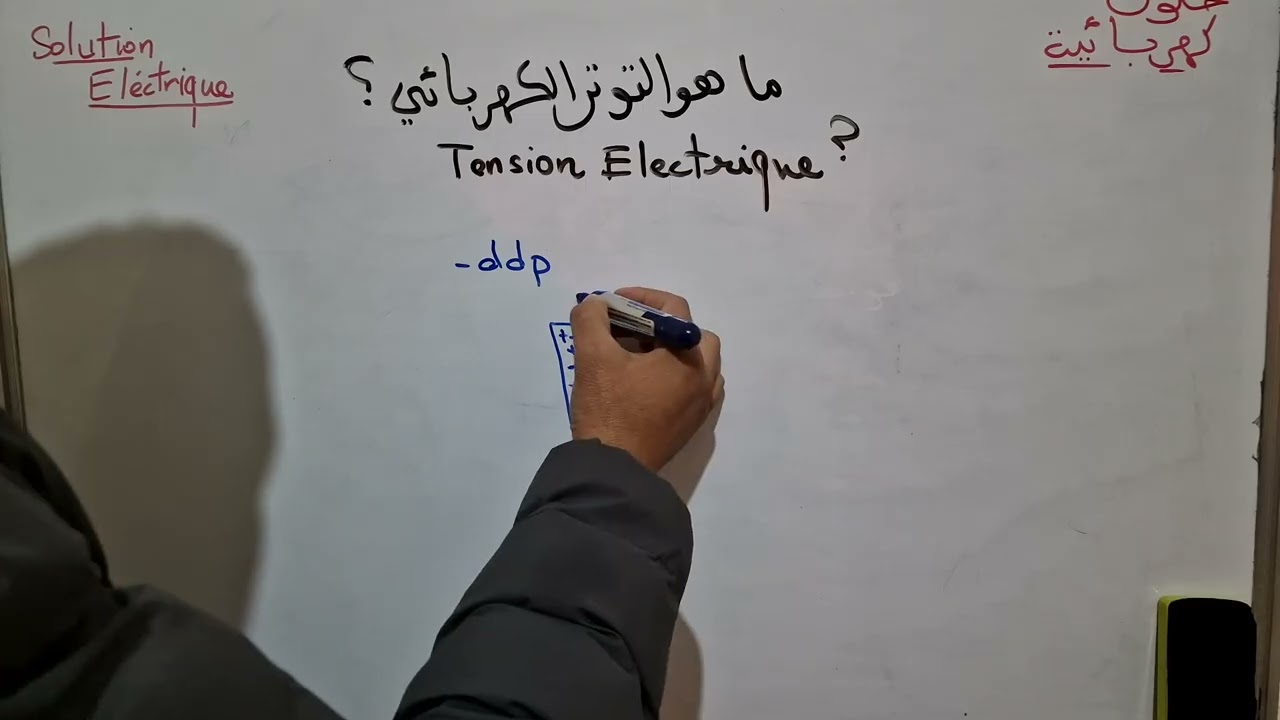 Solution
Eléctrique
حلول
كهربائية
ما هو التوتر الكهربائي ؟
Tension Electrique ?
- ddp